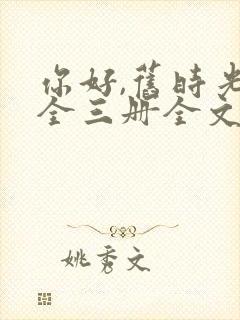 你好,舊時光
全三册全文
姚秀文